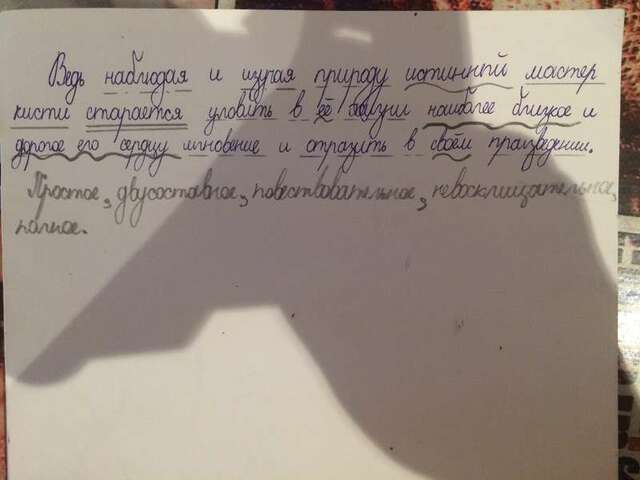 Ведь наблюдая и изучая природу истинный мастер
кисти старается уловить в её жизни наиболее близкое и
дорогое его сердцу мгновение и отразить в своём произведении.
Простое, двусоставное, повествовательное, невосклицательное,
полное.